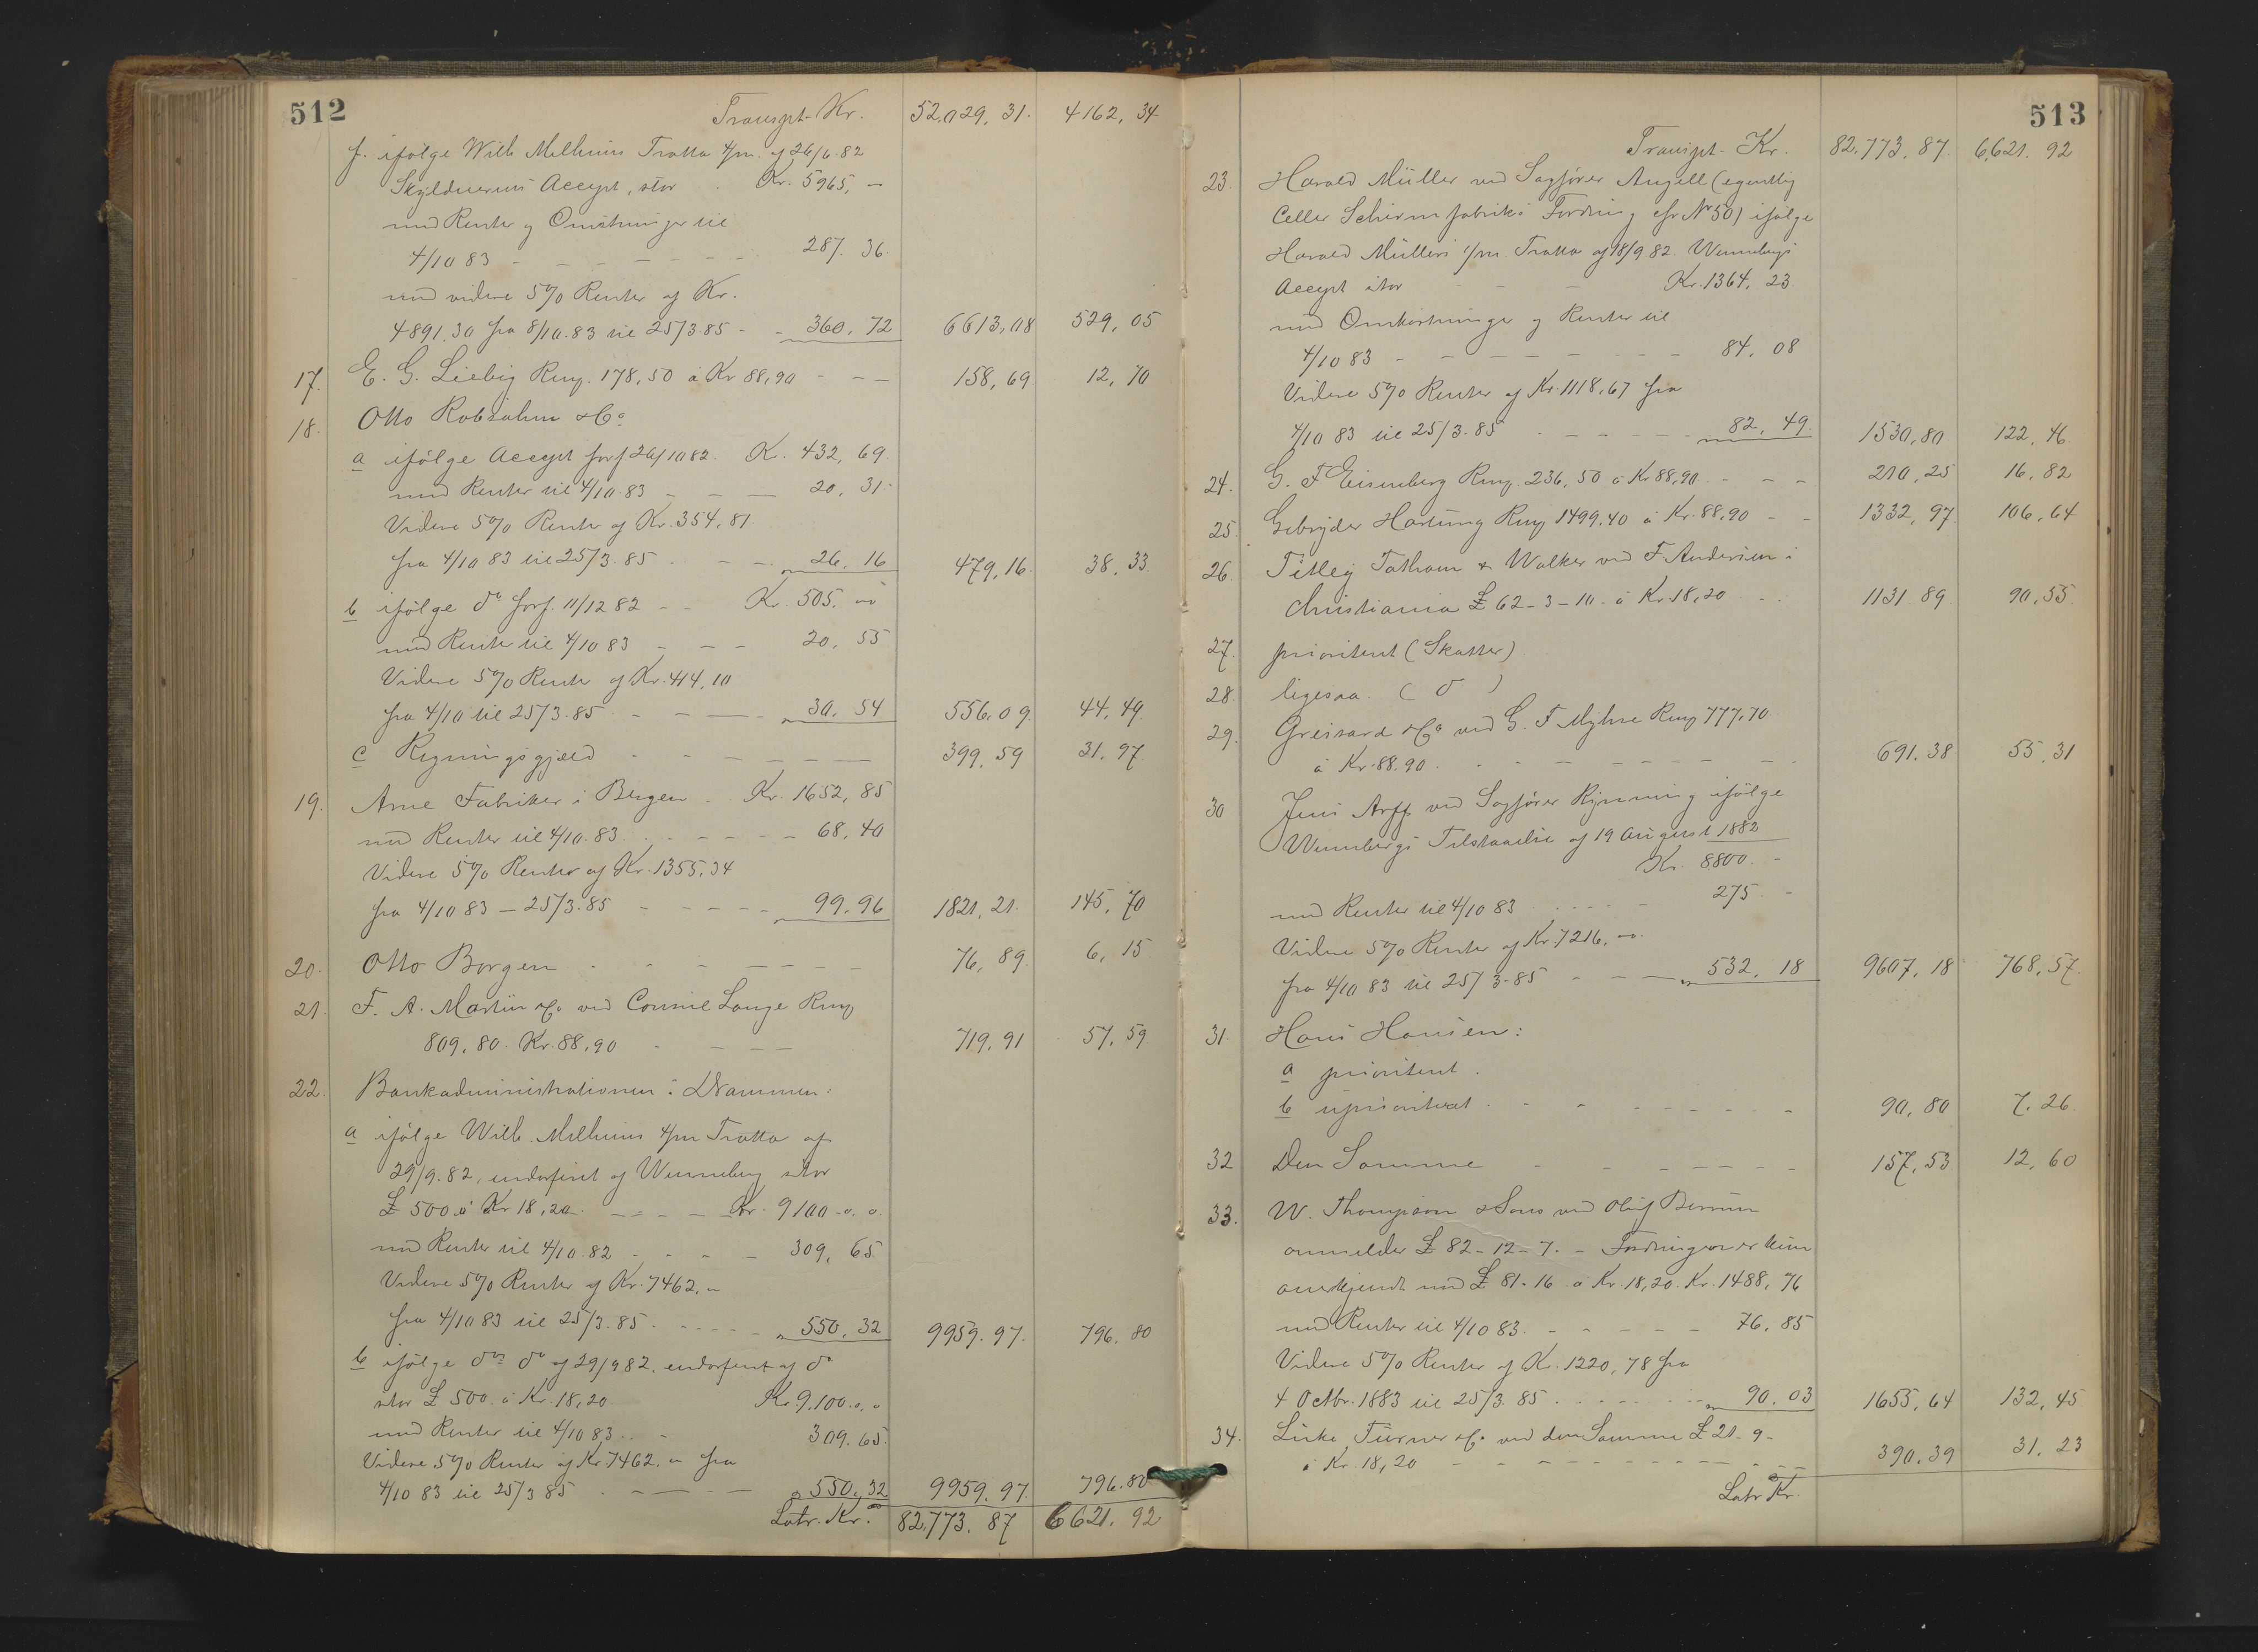 512
Transpt. Kr. 52,029,31. 4162,34
f. ifølge Wilh Melhuus Tratta 4/m. af 26/6.82
Skyldnerens Accept, stor Kr. 5965,
med Renter og Omsætninger til
4/10 83 - - - - - - 287. 36.
med videre 5% Renter af Kr.
4891.30 fra 8/10.83 til 25/3.85 - - 360,72 6613,08 529,05
17. E. G. Liebig Rmp. 178,50 à Kr 88,90 - - - 158,69 12,70
18. Otto Robsahm & Co
a ifølge Accept forf. 26/10 82. Kr. 432,69.
med Renter til 4/10.83 - - - 20,31.
Videre 5% Renter af Kr. 354,81
fra 4/10 83 til 25/3.85 - - 26,16 479,16. 38,33.
b ifølge do forf. 11/12 82 - - Kr. 505,
med Renter til 4/10 83 - - - 20,55
Videre 5% Renter af Kr. 414,10
fra 4/10 til 25/3.85 - - - 30.54 556.09. 44,49.
c Regningsgjæld - - - - - - 399,59 31,97
19. Arne Fabriker i Bergen Kr. 1652,85
med Renter til 4/10.83 - - - - 68,40
Videre 5% Renter af Kr. 1355,34
fra 4/10 83 - 25/3.85 - - - - - 99.96 1821,21. 145,70
20. Otto Borgen - - - - - - 76,89. 6,15
21. F. A. Martin & Co ved Consul Lange Rmp
809,80. Kr. 88,90 - - - - 719,91 57,59
22. Bankadministrationen i Drammen:
a ifølge Wilh. Melhuus 4/m Tratta af
29/9.82, endosseret af Wenneberg stor
£ 500 à Kr 18,20 - - - - Kr. 9100-0.0.
med Renter til 4/10.82 - - - - 309,65
Videre 5% Renter af Kr. 7462,
fra 4/10 83 til 25/3.85 - - - - 550,32 9959.97. 796.80
b ifølge ds do af 29/9 82. endosseret af do
stor £ 500. à Kr. 18,20 Kr 9.100.0,0
med Renter til 4/10 83 - 309.65.
Videre 5% Renter af Kr 7462. fra
4/10 83 til 25/3 85 - - - 550,32 9959.97. 796.80
Latr. Kr. 82,773. 87 6621. 92
513
Transpt. Kr. 82.773,87. 6,621. 92
23. Harald Müller ved Sagfører Angell (egentlig
Celler Schirmfabriks Fordring cfr No 50) ifølge
Harald Müllers /m. Tratta af 18/9 82 Wennebergs
Accept stor - - Kr. 1364,23
med Omkostninger og Renter til
4/10 83 - - - - - - 84,08
Videre 5% Renter af Kr. 1118,67 fra
4/10 83 til 25/3.85 - - - - 82,49. 1530,80 122,46
24. G. F Eisenberg Rmp. 236,50 à Kr 88,90. - - - 210,25 16,82
25. Gebrüder Hartung Rmp 1499.40 à Kr. 88,90 - - 1332,97 106,64
26. Titley Tatham & Walker ved F. Andersen i
Christiania £ 62-3-10 à Kr. 18,20 1131.89 90,55.
27. prioriteret (Skatter)
28. ligesaa. (do)
29. Greisard & Co ved G. F Myhre Rmp 777,70.
à Kr. 88.90. - - - - - - - 691.38 55.31
30 Jens Arff ved Sagfører Rynning ifølge
Wennebergs Tilstaaelse af 19 August 1882
Kr. 8800. -
med Renter til 4/10 83 - - - - 275 -
Videre 5% Renter af Kr. 7216,
fra 4/10 83 til 25/3-85 - - - 532,18 9607,18 768,57.
31. Hans Hansen:
a prioriteret.
b uprioriteret - - - - - - - - 90,80 7.26.
32 Den Samme - - - - - - - 157,53 12,60
33. W. Thompson & Sons ved Oluf
anmelder £ 82-12-7. - Fordringen er kun
anerkjendt med £ 81-16 à Kr. 18,20. Kr. 1488,76
med Renter til 4/10 83. - - - - - 76,85
Videre 5% Renter af Kr. 1220,78 fra
4 Octbr. 1883 til 25/3.85 - - - - 90.03 1655,64 132,45
34. Turner & Co ved den Samme £ 21-9-
à Kr. 18,20 - - - - - - - - 390.39 31.23
Latr Kr.